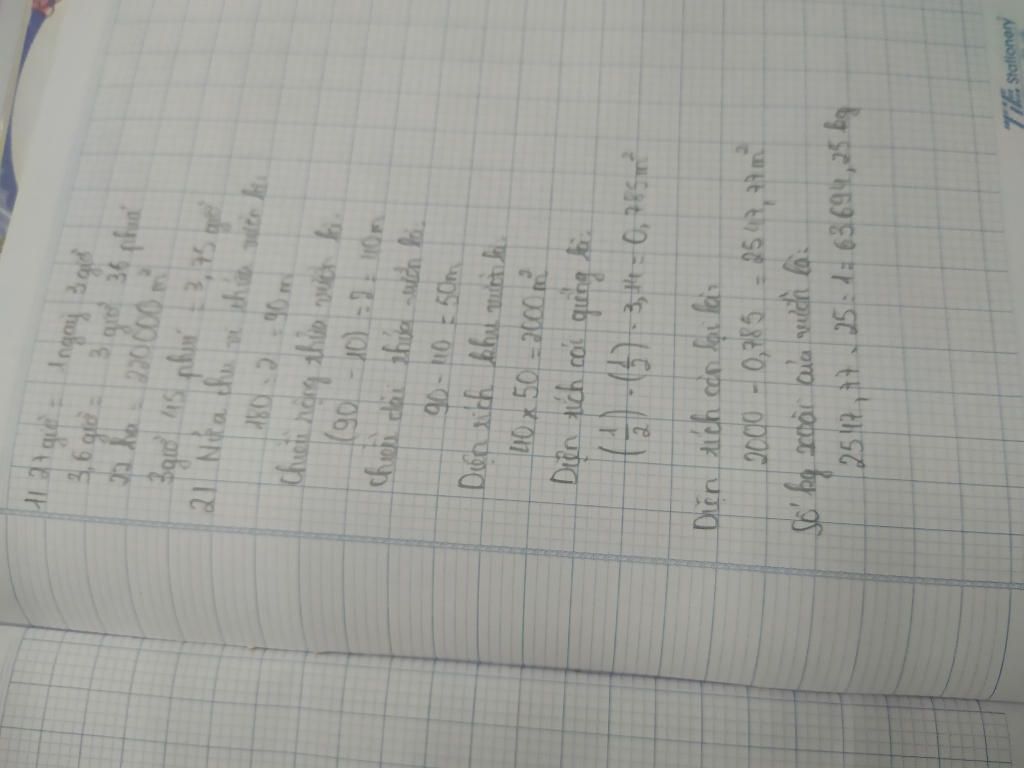 1) 27 giờ = 1 ngày 3 giờ
3,6 giờ = 3 giờ 36 phút
22 ha = 220 000 m²
3 giờ 45 phút = 3,75 giờ
2) Nửa chu vi thửa vườn là:
180 : 2 = 90 m
Chiều rộng thửa vườn là:
(90 - 10) : 2 = 40 m
Chiều dài thửa vườn là:
90 - 40 = 50m
Diện tích khu vườn là:
40 x 50 = 2000 m²
Diện tích cái giếng là:
(1/2) . (1/2) . 3,14 = 0,785 m²
Diện tích còn lại là:
2000 - 0,785 = 2547,77 m²
Số kg xoài của vườn là:
2547,77 . 25 : 1 = 63694,25 kg
TiE Stationery